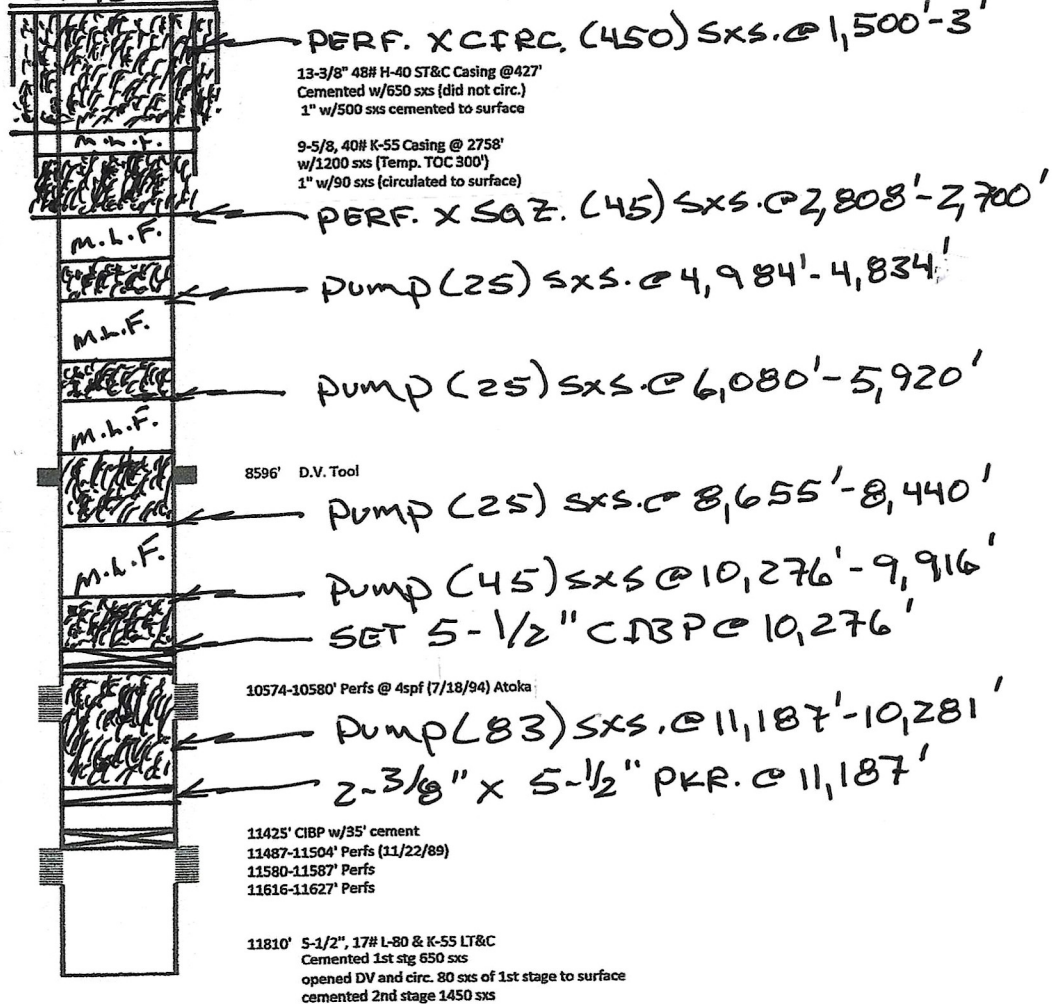 PERF. X CIRC. (450) SXS. @ 1,500'-3'
13-3/8" 48# H-40 ST&C Casing @427'
Cemented w/650 sxs (did not circ.)
1" w/500 sxs cemented to surface
M.L.F.
9-5/8, 40# K-55 Casing @ 2758'
w/1200 sxs (Temp. TOC 300')
1" w/90 sxs (circulated to surface)
PERF. X SQZ. (45) SXS. @ 2,808'-2,700'
M.L.F.
Pump (25) SXS. @ 4,984'-4,834'
M.L.F.
Pump (25) SXS. @ 6,080'-5,920'
M.L.F.
8596' D.V. Tool
Pump (25) SXS. @ 8,655'-8,440'
M.L.F.
Pump (45) SXS @ 10,276'-9,916'
SET 5-1/2" CIBP @ 10,276'
10574-10580' Perfs @ 4spf (7/18/94) Atoka
Pump (83) SXS. @ 11,187'-10,281'
2-3/8" X 5-1/2" PKR. @ 11,187'
11425' CIBP w/35' cement
11487-11504' Perfs (11/22/89)
11580-11587' Perfs
11616-11627' Perfs
11810' 5-1/2", 17# L-80 & K-55 LT&C
Cemented 1st stg 650 sxs
opened DV and circ. 80 sxs of 1st stage to surface
cemented 2nd stage 1450 sxs